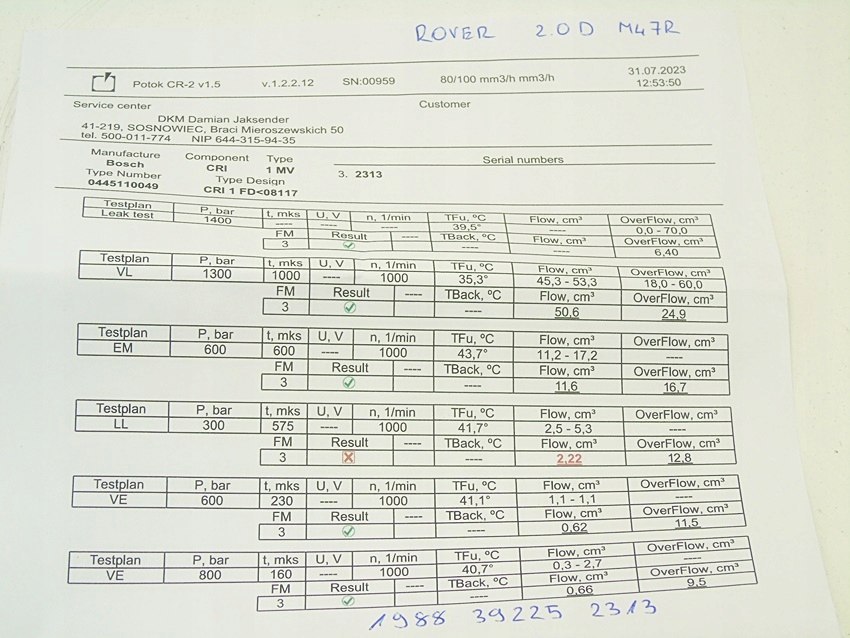 ROVER 2.0D M47R
Potok CR-2 v1.5 v.1.2.2.12 SN:00959 80/100 mm3/h mm3/h 31.07.2023
12:53:50
Service center Customer
DKM Damian Jaksender
41-219, SOSNOWIEC, Braci Mieroszewskich 50
tel. 500-011-774 NIP 644-315-94-35
Manufacture Component Type Serial numbers
Bosch CRI 1 MV 3. 2313
Type Number Type Design
0445110049 CRI 1 FD<08117
Testplan P, bar t, mks U, V n, 1/min TFu, ºC Flow, cm³ OverFlow, cm³
Leak test 1400 ---- ---- ---- 39,5° ---- 0,0 - 70,0
FM Result ---- TBack, ºC Flow, cm³ OverFlow, cm³
3 ---- ---- 6,40
Testplan P, bar t, mks U, V n, 1/min TFu, ºC Flow, cm³ OverFlow, cm³
VL 1300 1000 ---- 1000 35,3° 45,3 - 53,3 18,0 - 60,0
FM Result ---- TBack, ºC Flow, cm³ OverFlow, cm³
3 ---- 50,6 24,9
Testplan P, bar t, mks U, V n, 1/min TFu, ºC Flow, cm³ OverFlow, cm³
EM 600 600 ---- 1000 43,7° 11,2 - 17,2 ----
FM Result ---- TBack, ºC Flow, cm³ OverFlow, cm³
3 ---- 11,6 16,7
Testplan P, bar t, mks U, V n, 1/min TFu, ºC Flow, cm³ OverFlow, cm³
LL 300 575 ---- 1000 41,7° 2,5 - 5,3 ----
FM Result ---- TBack, ºC Flow, cm³ OverFlow, cm³
3 ---- 2,22 12,8
Testplan P, bar t, mks U, V n, 1/min TFu, ºC Flow, cm³ OverFlow, cm³
VE 600 230 ---- 1000 41,1° 1,1 - 1,1 ----
FM Result ---- TBack, ºC Flow, cm³ OverFlow, cm³
3 ---- 0,62 11,5
Testplan P, bar t, mks U, V n, 1/min TFu, ºC Flow, cm³ OverFlow, cm³
VE 800 160 ---- 1000 40,7° 0,3 - 2,7 ----
FM Result ---- TBack, ºC Flow, cm³ OverFlow, cm³
3 ---- 0,66 9,5
1988 39225 2313